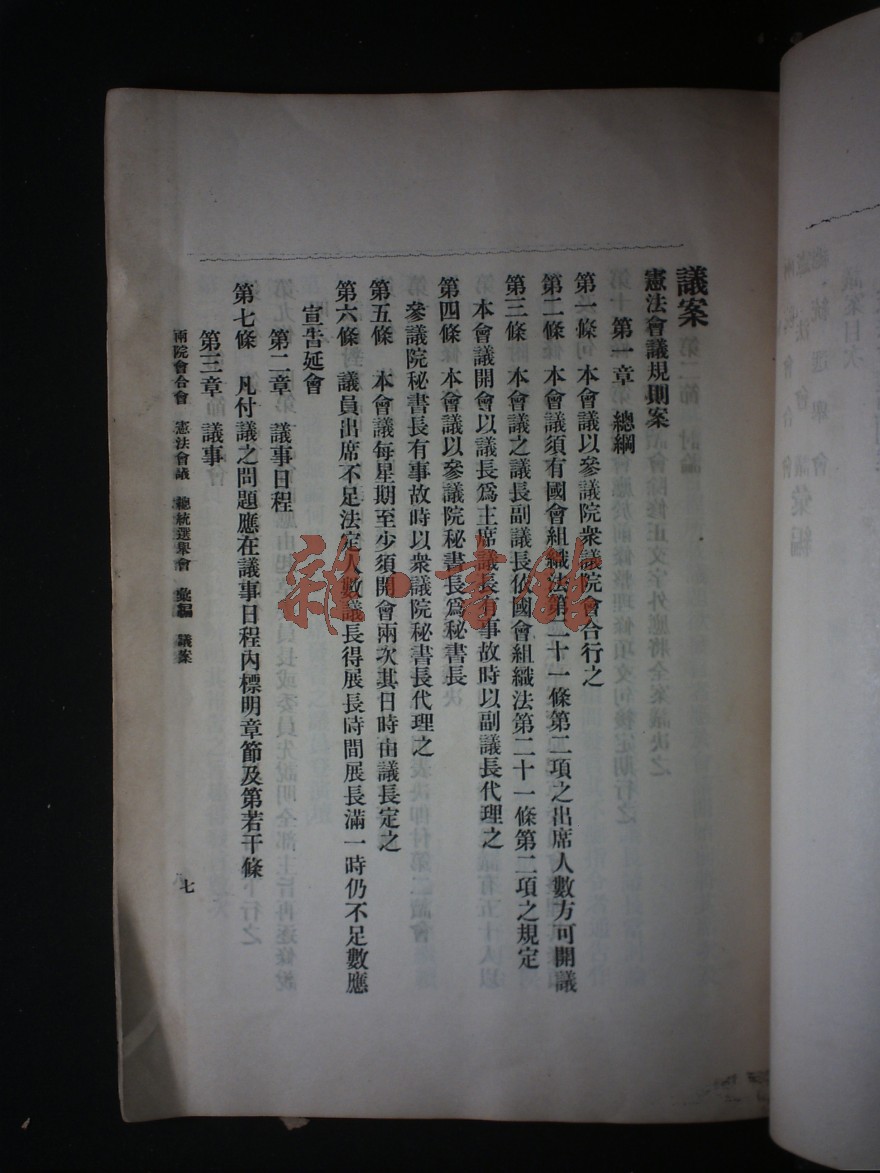 議案
憲法會議規則案
第一章 總綱
第一條 本會議以參議院衆議院會合行之
第二條 本會議須有國會組織法第二十一條第二項之出席人數方可開議
第三條 本會議之議長副議長依國會組織法第二十一條第二項之規定
本會議開會以議長爲主席議長有事故時以副議長代理之
第四條 本會議以參議院秘書長爲秘書長
參議院秘書長有事故時以衆議院秘書長代理之
第五條 本會議每星期至少須開會兩次其日時由議長定之
第六條 議員出席不足法定人數議長得展長時間展長滿一時仍不足數應
宣告延會
第二章 議事日程
第七條 凡付議之問題應在議事日程內標明章節及第若干條
第三章 議事
兩院會合會 憲法會議 總統選舉會 彙編 議案
七
雜·書館
議案目次